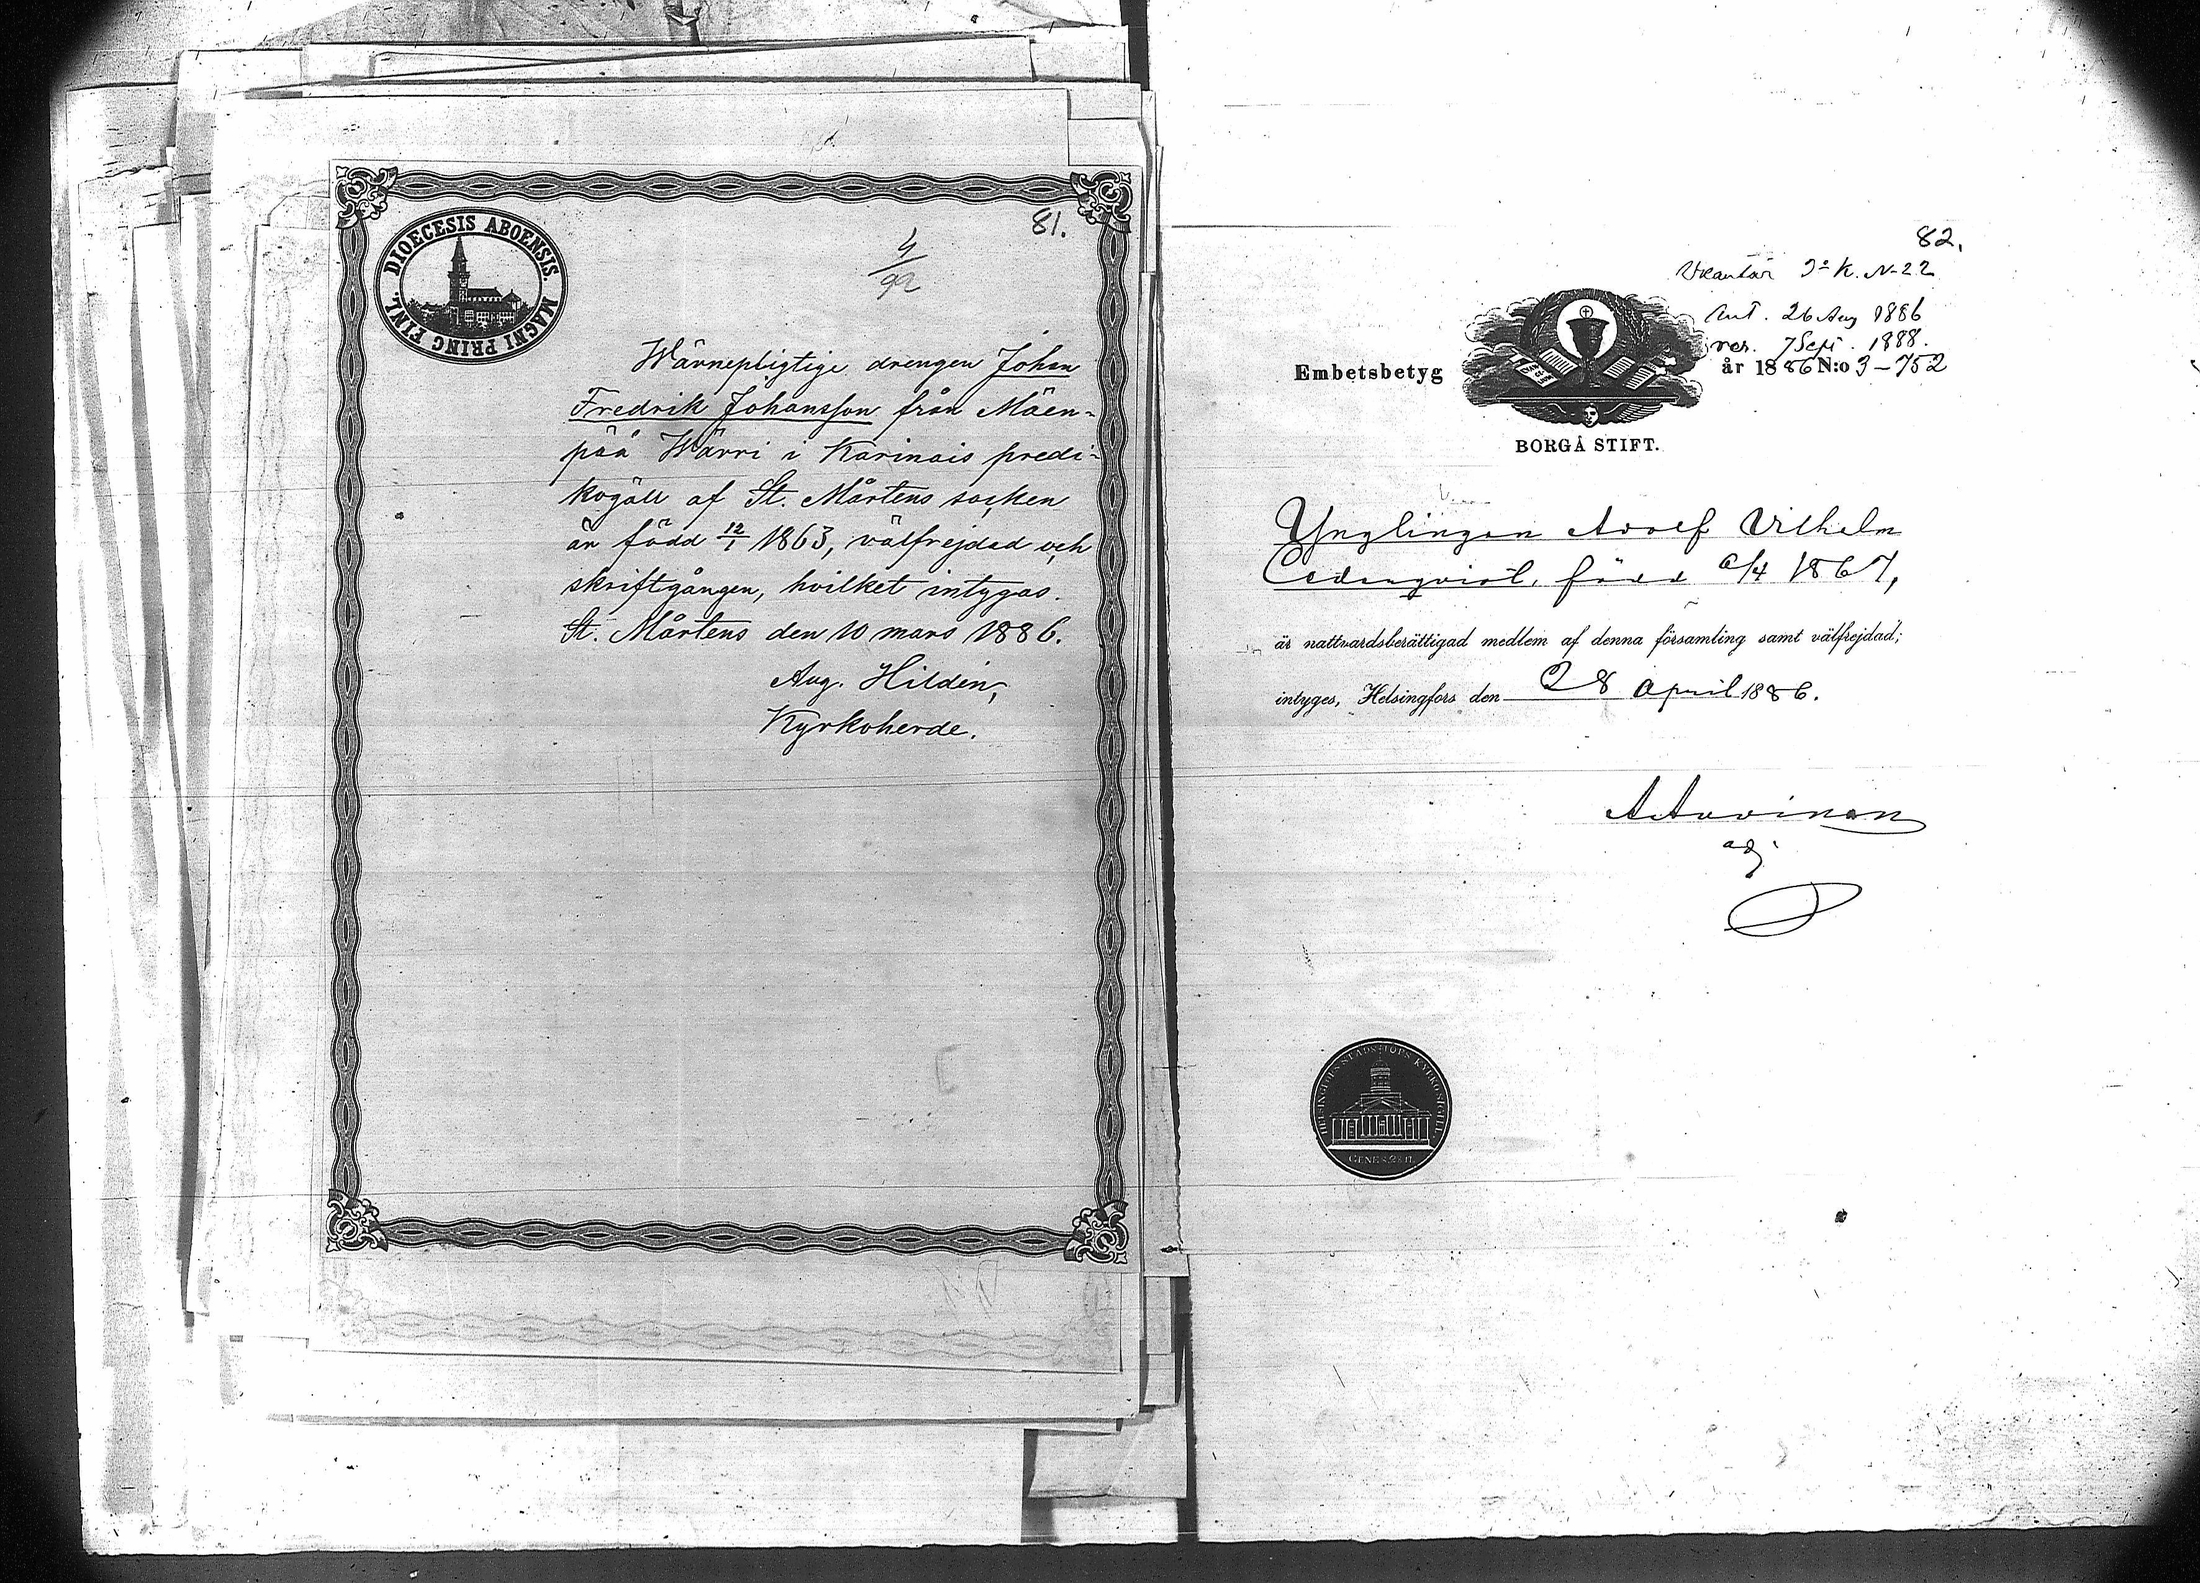 81.
DIOECESIS ABOENSIS. MAGNI PRINC FINL.
4/92
Wärnepligtige drengen Johan
Fredrik Johansson från Mäen-
pää Wärri i Karinais predi-
kogäll af St. Mårtens socken
är född 12/1 1863, välfrejdad och
skriftgången, hvilket intygas.
St. Mårtens den 10 mars 1886.
Aug. Hildén,
Kyrkoherde.
82.
K. N-22
Ant. 26 Aug 1886
res. 7 Sept. 1888.
Embetsbetyg
år 1886 N:o 3-752
BORGÅ STIFT.
Ynglingen Adolf Vilhelm
Cederqvist, född /4 1867,
är nattvardsberättigad medlem af denna församling samt välfrejdad;
intyges, Helsingfors den 28 April 1886.
adj.
HELSINGFORS STADS KYRKO SIGILL